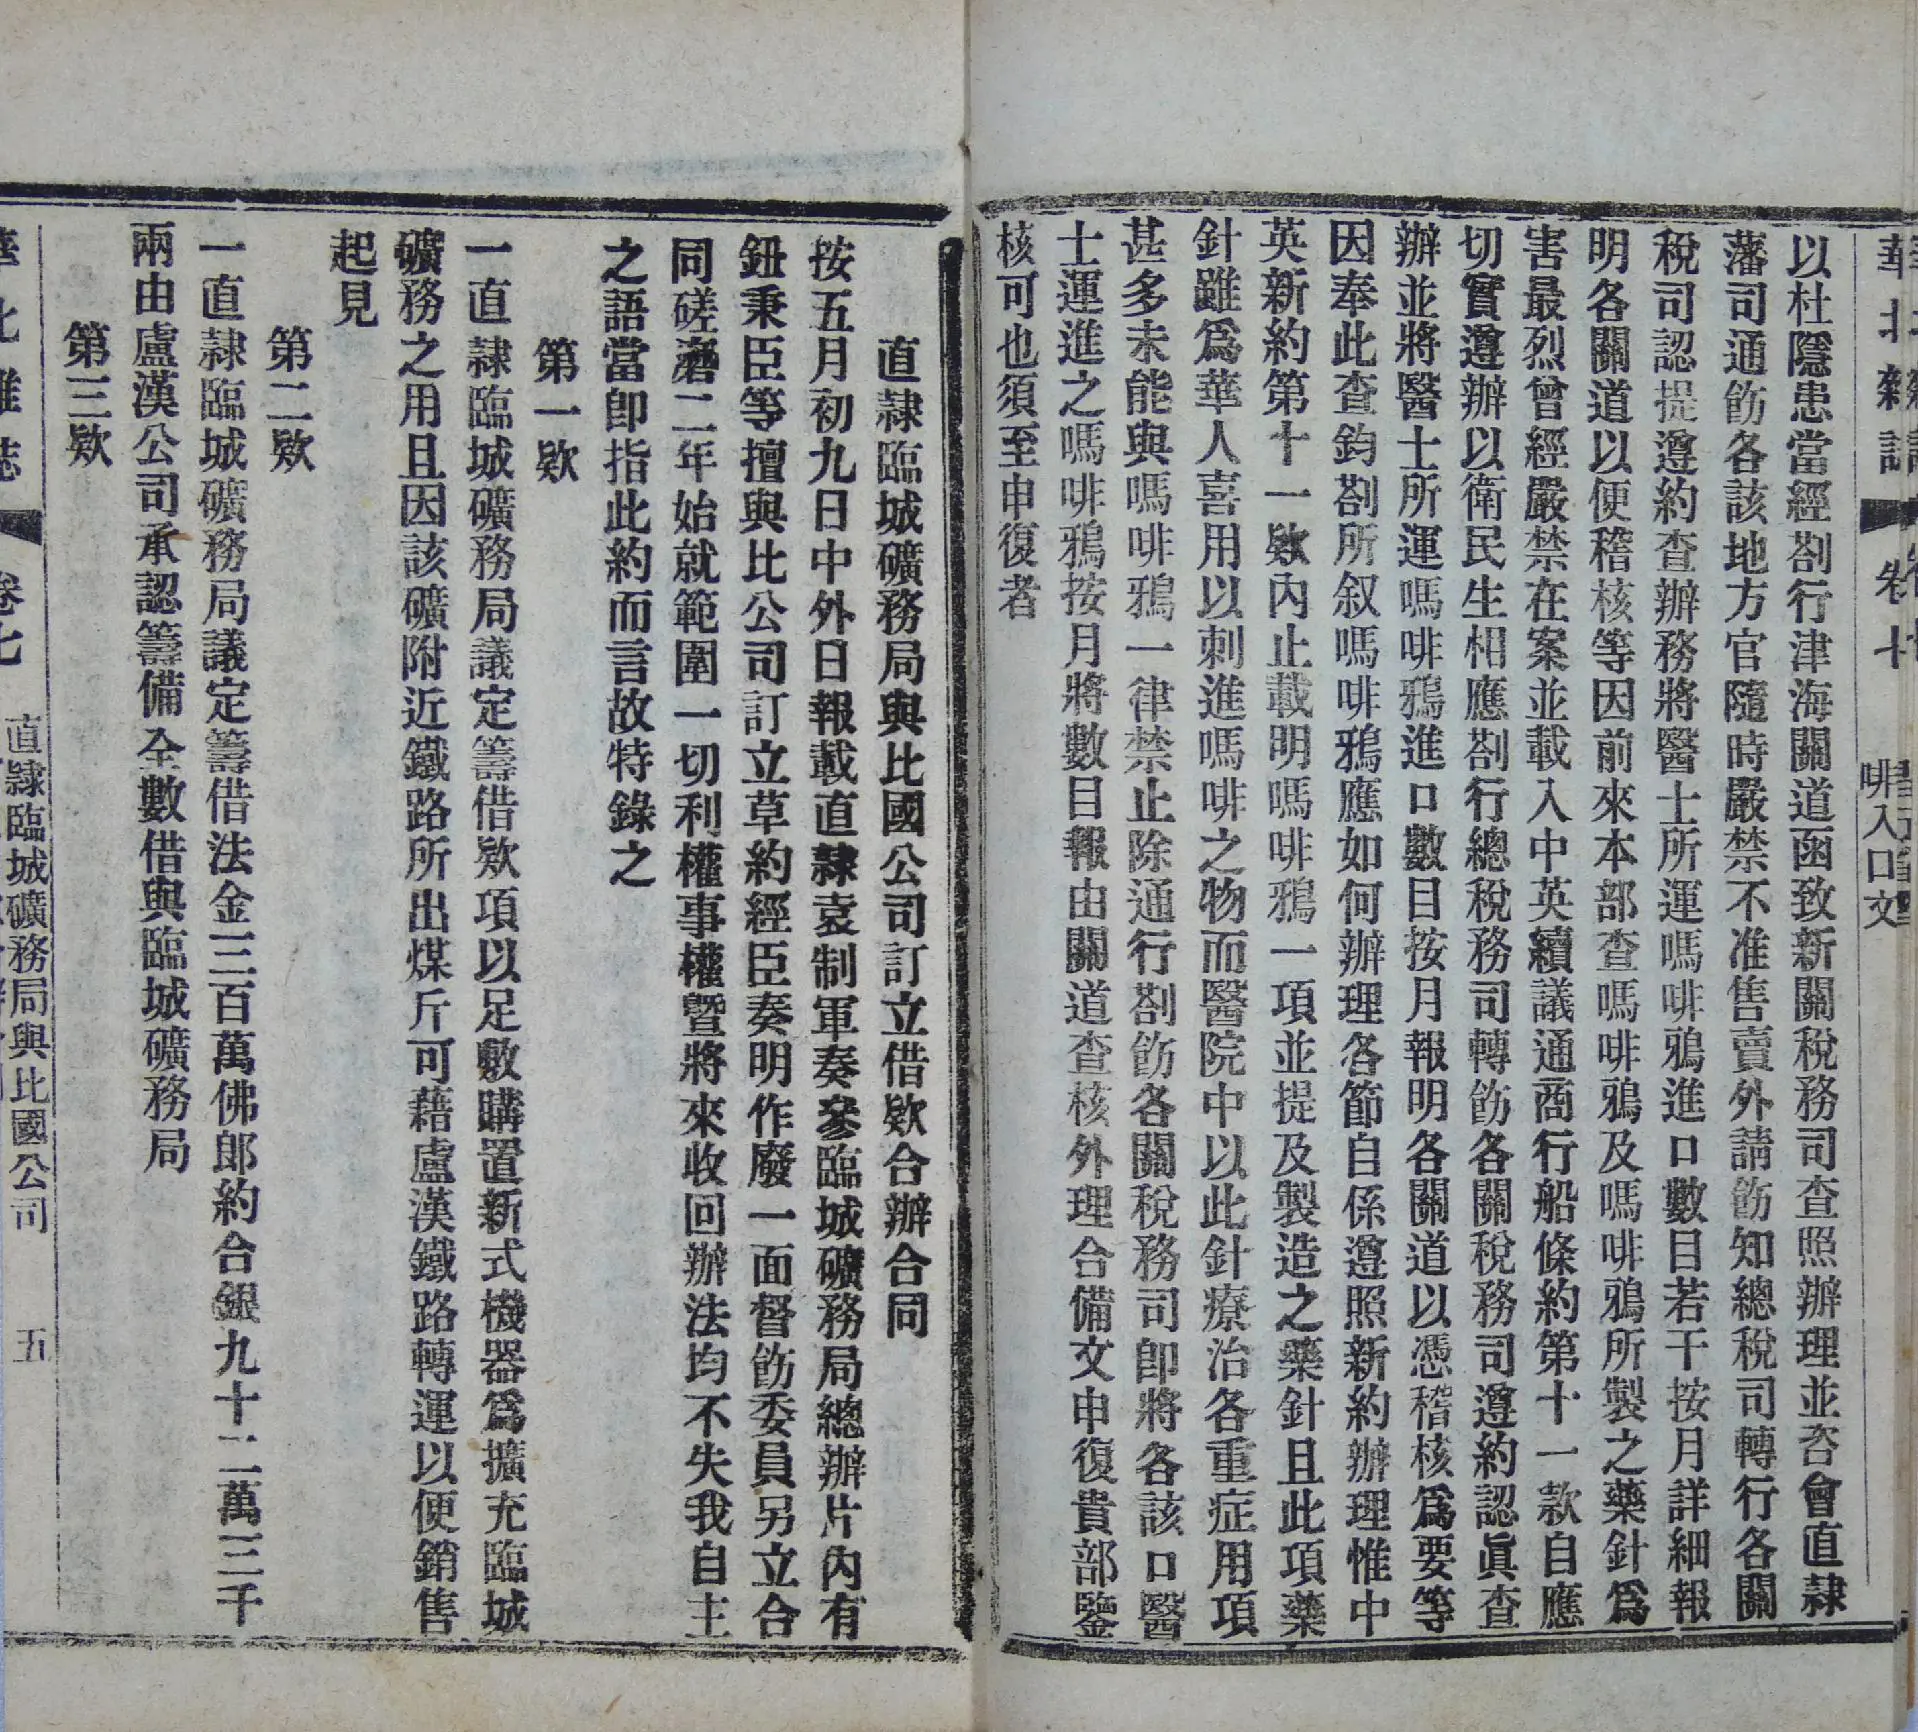 華北雜誌 卷七 啡入口文
以杜隱患當經劄行津海關道函致新關稅務司查照辦理並咨會直隷
藩司通飭各該地方官隨時嚴禁不准售賣外請飭知總稅司轉行各關
稅司認提遵約查辦務將醫士所運嗎啡鴉進口數目若干按月詳細報
明各關道以便稽核等因前來本部查嗎啡鴉及嗎啡鴉所製之藥針爲
害最烈曾經嚴禁在案並載入中英續議通商行船條約第十一款自應
切實遵辦以衛民生相應劄行總稅務司轉飭各關稅務司遵約認眞查
辦並將醫士所運嗎啡鴉進口數目按月報明各關道以憑稽核爲要等
因奉此查鈞劄所叙嗎啡鴉應如何辦理各節自係遵照新約辦理惟中
英新約第十一欵內止載明嗎啡鴉一項並提及製造之藥針且此項藥
針雖爲華人喜用以刺進嗎啡之物而醫院中以此針療治各重症用項
甚多未能與嗎啡鴉一律禁止除通行劄飭各關稅務司卽將各該口醫
士運進之嗎啡鴉按月將數目報由關道查核外理合備文申復貴部鑒
核可也須至申復者
直隷臨城礦務局與比國公司訂立借欵合辦合同
按五月初九日中外日報載直隷袁制軍奏參臨城礦務局總辦片內有
鈕秉臣等擅與比公司訂立草約經臣奏明作廢一面督飭委員另立合
同磋磨二年始就範圍一切利權事權曁將來收回辦法均不失我自主
之語當卽指此約而言故特錄之
第一欵
一直隷臨城礦務局議定籌借欵項以足敷購置新式機器爲擴充臨城
礦務之用且因該礦附近鐵路所出煤斤可藉盧漢鐵路轉運以便銷售
起見
第二欵
一直隷臨城礦務局議定籌借法金三百萬佛郎約合銀九十二萬三千
兩由盧漢公司承認籌備全數借與臨城礦務局
第三欵
華北雜誌 卷七 直隷臨城礦務局與比國公司 五